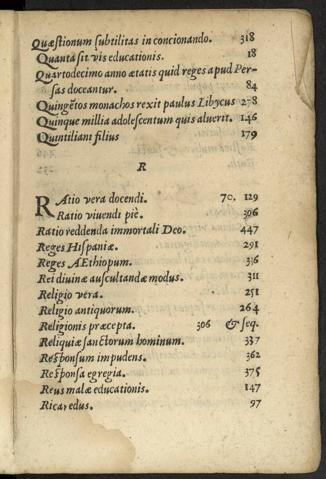 Quæstionum subtilitas in concionando. 318
Quanta sit vis educationis. 18
Quartodecimo anno ætatis quid reges apud Per-
sas doceantur. 84
Quingẽtos monachos rexit paulus Libycus 278
Quinque millia adolescentum quis aluerit. 146
Quintiliani filius 179
R
RAtio vera docendi. 70. 129
Ratio viuendi piè. 306
Ratio reddenda immortali Deo. 447
Reges Hispaniæ. 291
Reges AEthiopum. 336
Rei diuinæ auscultandæ modus. 311
Religio vera. 251
Religio antiquorum. 264
Religionis præcepta. 306 & seq.
Reliquiæ sanctorum hominum. 337
Responsum impudens. 362
Responsa egregia. 375
Reus malæ educationis. 147
Ricaredus. 97